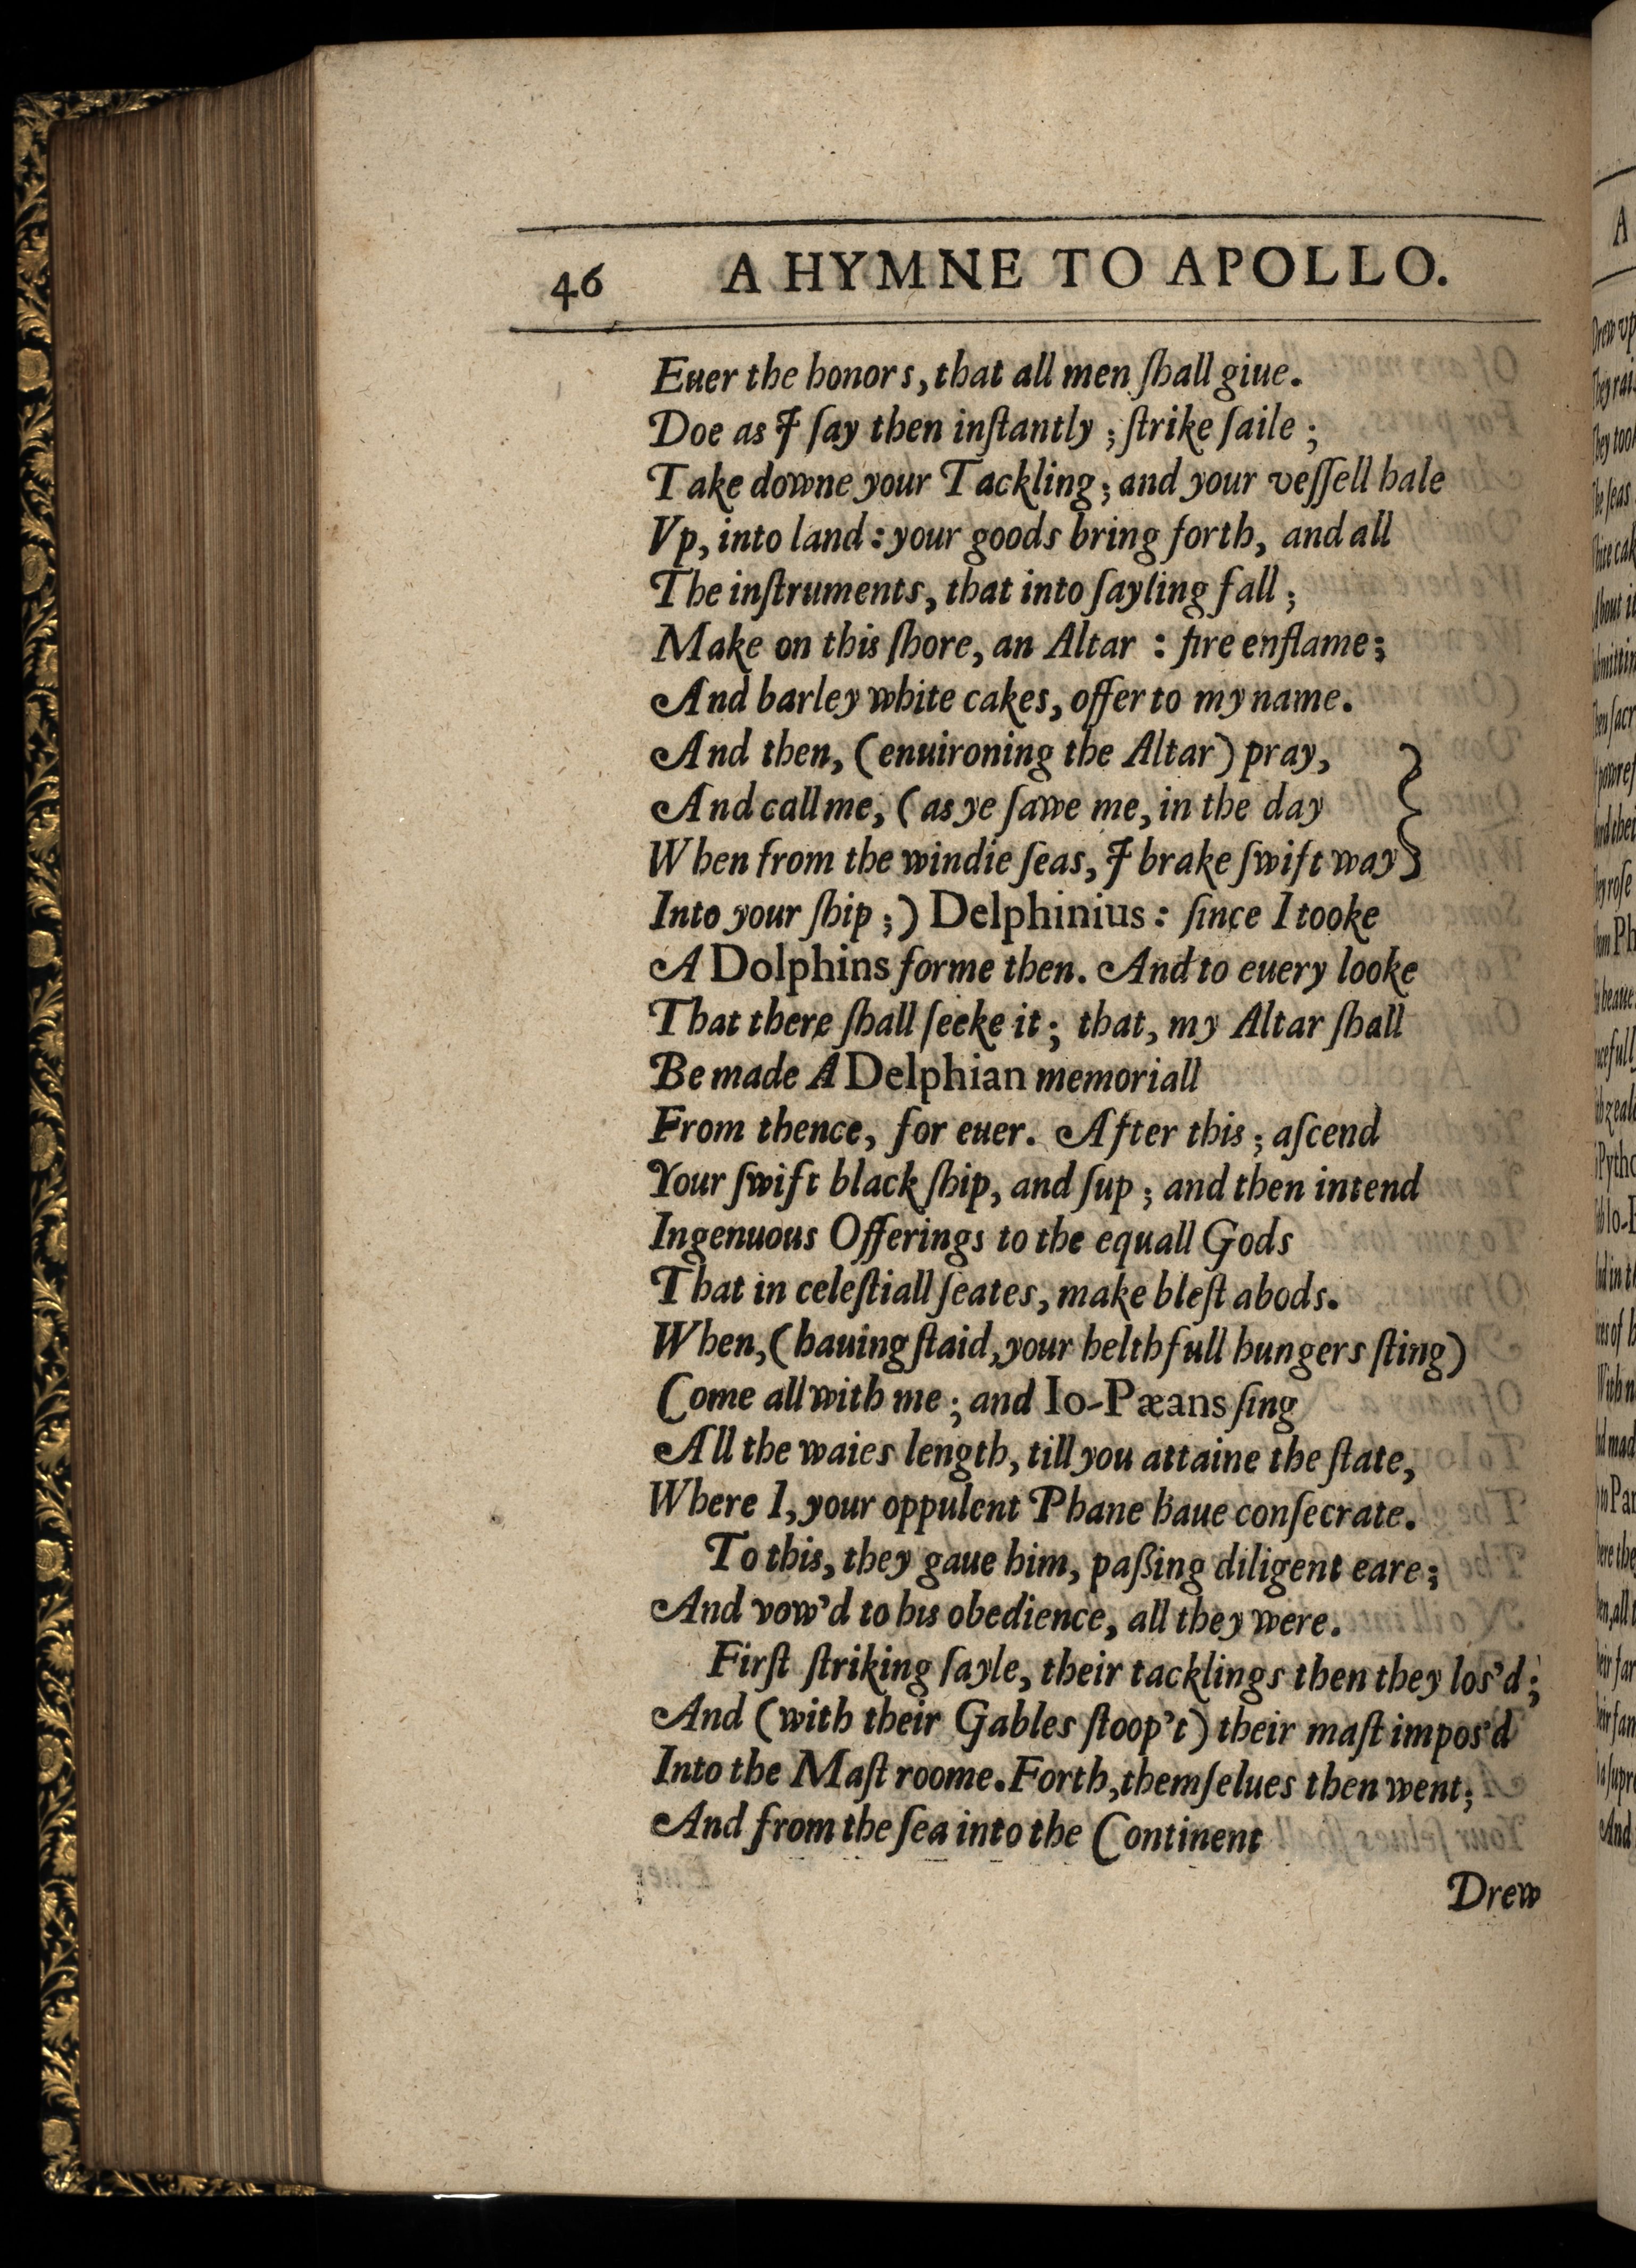 46 A HYMNE TO APOLLO.
Euer the honors, that all men ſhall giue.
Doe as I ſay then inſtantly ; ſtrike ſaile ;
Take downe your Tackling ; and your veſſell hale
Vp, into land : your goods bring forth, and all
The inſtruments, that into ſayling fall ;
Make on this ſhore, an Altar : fire enflame ;
And barley white cakes, offer to my name.
And then, (enuironing the Altar) pray,
And call me, (as ye ſawe me, in the day
When from the windie ſeas, I brake ſwift way
Into your ſhip ;) Delphinius : ſince I tooke
A Dolphins forme then. And to euery looke
That there ſhall ſeeke it ; that, my Altar ſhall
Be made A Delphian memoriall
From thence, for euer. After this ; aſcend
Your ſwift black ſhip, and ſup ; and then intend
Ingenuous Offerings to the equall Gods
That in celeſtiall ſeates, make bleſt abods.
When, (hauing ſtaid, your helthfull hungers ſting)
Come all with me ; and Io-Pæans ſing
All the waies length, till you attaine the ſtate,
Where I, your oppulent Phane haue conſecrate.
To this, they gaue him, paßing diligent eare ;
And vow'd to his obedience, all they were.
Firſt ſtriking ſayle, their tacklings then they los'd ;
And (with their Gables ſtoop't) their maſt impos'd
Into the Maſt roome. Forth, themſelues then went ;
And from the ſea into the Continent
Drew